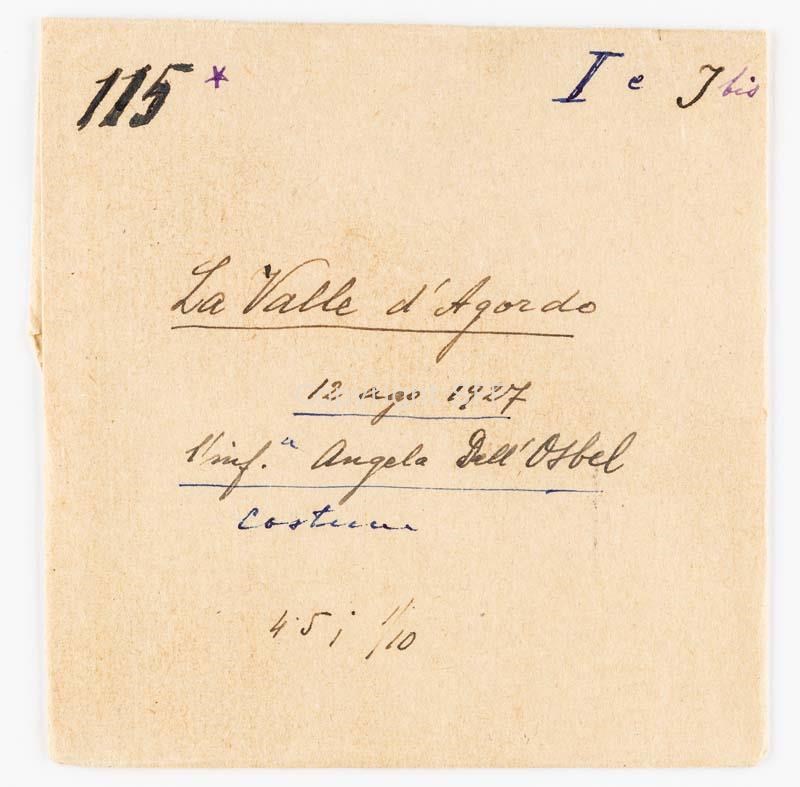 115 * I e I bis
La Valle d'Agordo
12 ago 1927
l'inf.a Angela Dell'Osbel
costumi
4.5 ; 1/10